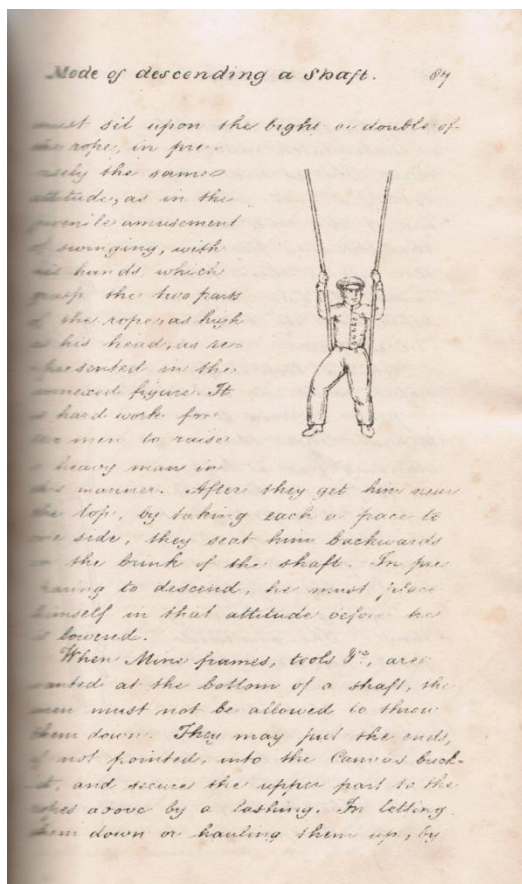 Mode of descending a Shaft. 87
must sit upon the bight or double of
the rope, in pre-
cisely the same
attitude, as in the
juvenile amusement
of swinging, with
his hands, which
grasp the two parts
of the rope, as high
as his head, as re-
presented in the
annexed figure. It
is hard work for
two men to raise
a heavy man in
this manner. After they get him near
the top, by taking each a pace to
one side, they seat him backwards
on the brink of the shaft. In pre
paring to descend, he must place
himself in that attitude before he
is lowered.
When Mine frames, tools &c, are
wanted at the bottom of a shaft, the
men must not be allowed to throw
them down. They may put the ends,
if not pointed, into the Canvas buck-
et, and secure the upper part to the
ropes above by a lashing. In letting
them down or hauling them up, by